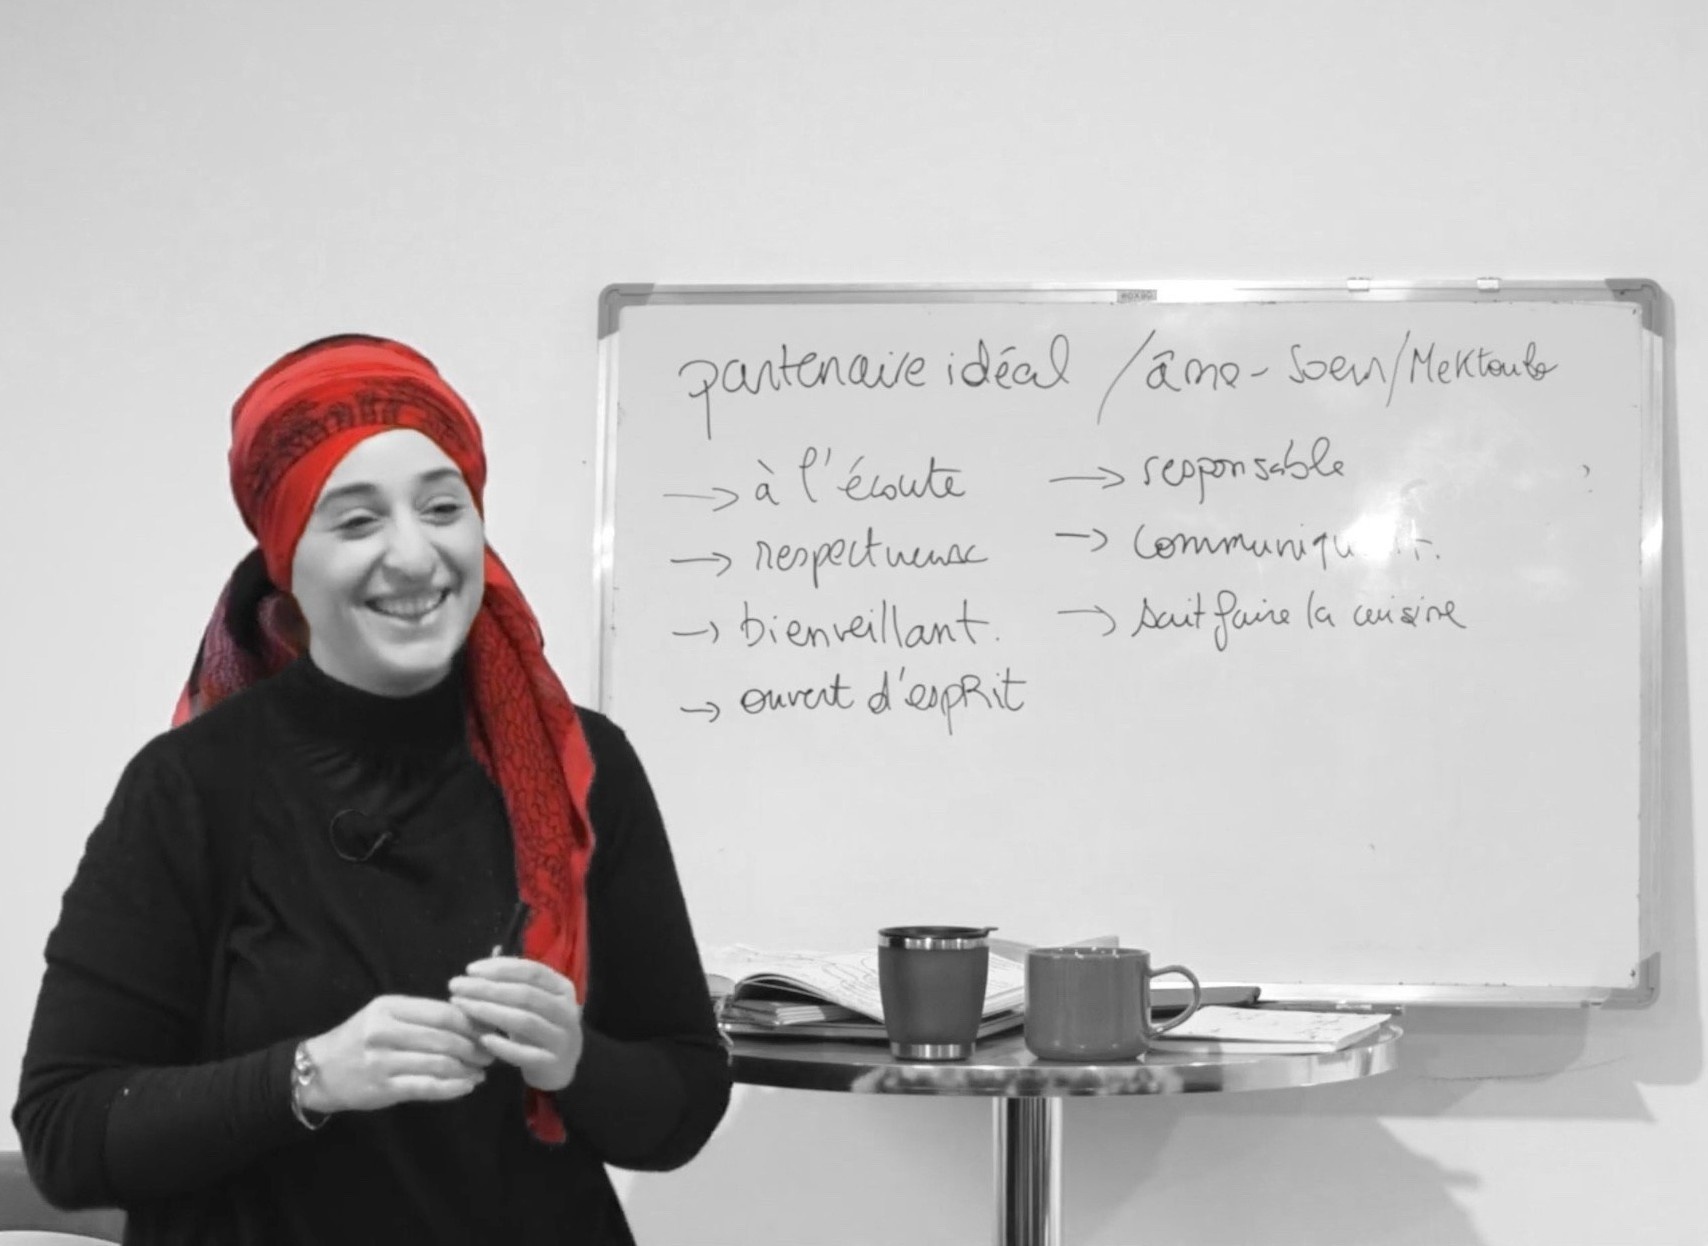 partenaire idéal / âme-soeur/Mektoub
→ à l'écoute
→ respectueux
→ bienveillant.
→ ouvert d'espRit
→ responsable
→ sait faire la cuisine